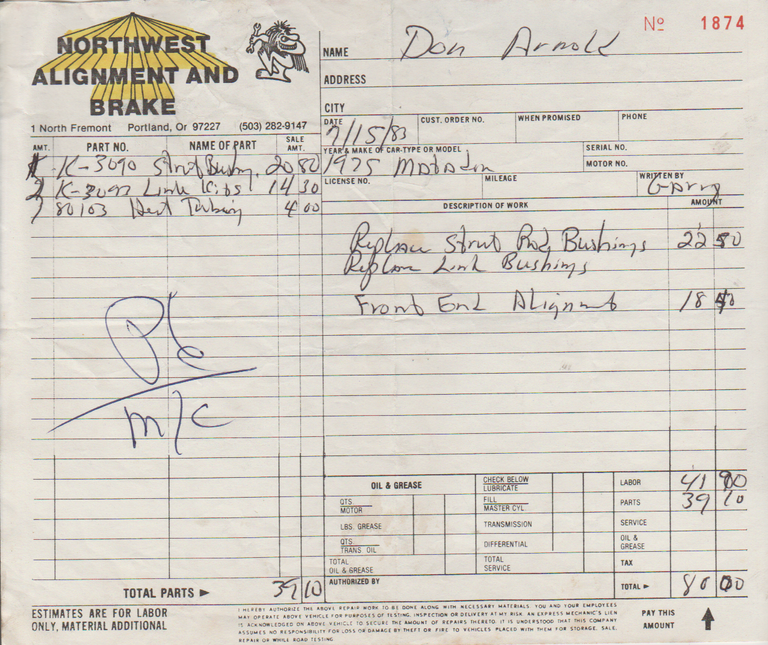 NORTHWEST
ALIGNMENT AND
BRAKE
1 North Fremont Portland, Or 97227 (503) 282-9147
Nº 1874
NAME Don Arnold
ADDRESS
CITY
DATE 7/15/83
CUST. ORDER NO.
WHEN PROMISED
PHONE
YEAR & MAKE OF CAR-TYPE OR MODEL
1975 Matador
SERIAL NO.
MOTOR NO.
LICENSE NO.
MILEAGE
WRITTEN BY
Garry
AMT. PART NO. NAME OF PART SALE AMT.
K-3090 Strut Bushing 20 80
2 K-3097 Link Kits 14 30
80103 Heat Tubing 4 00
DESCRIPTION OF WORK AMOUNT
Replace Strut Rod Bushings 22 50
Replace Link Bushings
Front End Alignment 18 50
Pd
M/C
OIL & GREASE
QTS
MOTOR
LBS. GREASE
QTS
TRANS OIL
TOTAL
OIL & GREASE
CHECK BELOW
LUBRICATE
FILL
MASTER CYL.
TRANSMISSION
DIFFERENTIAL
TOTAL
SERVICE
LABOR 41 00
PARTS 39 10
SERVICE
OIL &
GREASE
TAX
TOTAL ► 80 00
TOTAL PARTS ► 39 10
AUTHORIZED BY
ESTIMATES ARE FOR LABOR
ONLY, MATERIAL ADDITIONAL
I HEREBY AUTHORIZE THE ABOVE REPAIR WORK TO BE DONE ALONG WITH NECESSARY MATERIALS. YOU AND YOUR EMPLOYEES
MAY OPERATE ABOVE VEHICLE FOR PURPOSES OF TESTING, INSPECTION OR DELIVERY AT MY RISK. AN EXPRESS MECHANIC'S LIEN
IS ACKNOWLEDGED ON ABOVE VEHICLE TO SECURE THE AMOUNT OF REPAIRS THERETO. IT IS UNDERSTOOD THAT THIS COMPANY
ASSUMES NO RESPONSIBILITY FOR LOSS OR DAMAGE BY THEFT OR FIRE TO VEHICLES PLACED WITH THEM FOR STORAGE, SALE,
REPAIR OR WHILE ROAD TESTING.
PAY THIS
AMOUNT